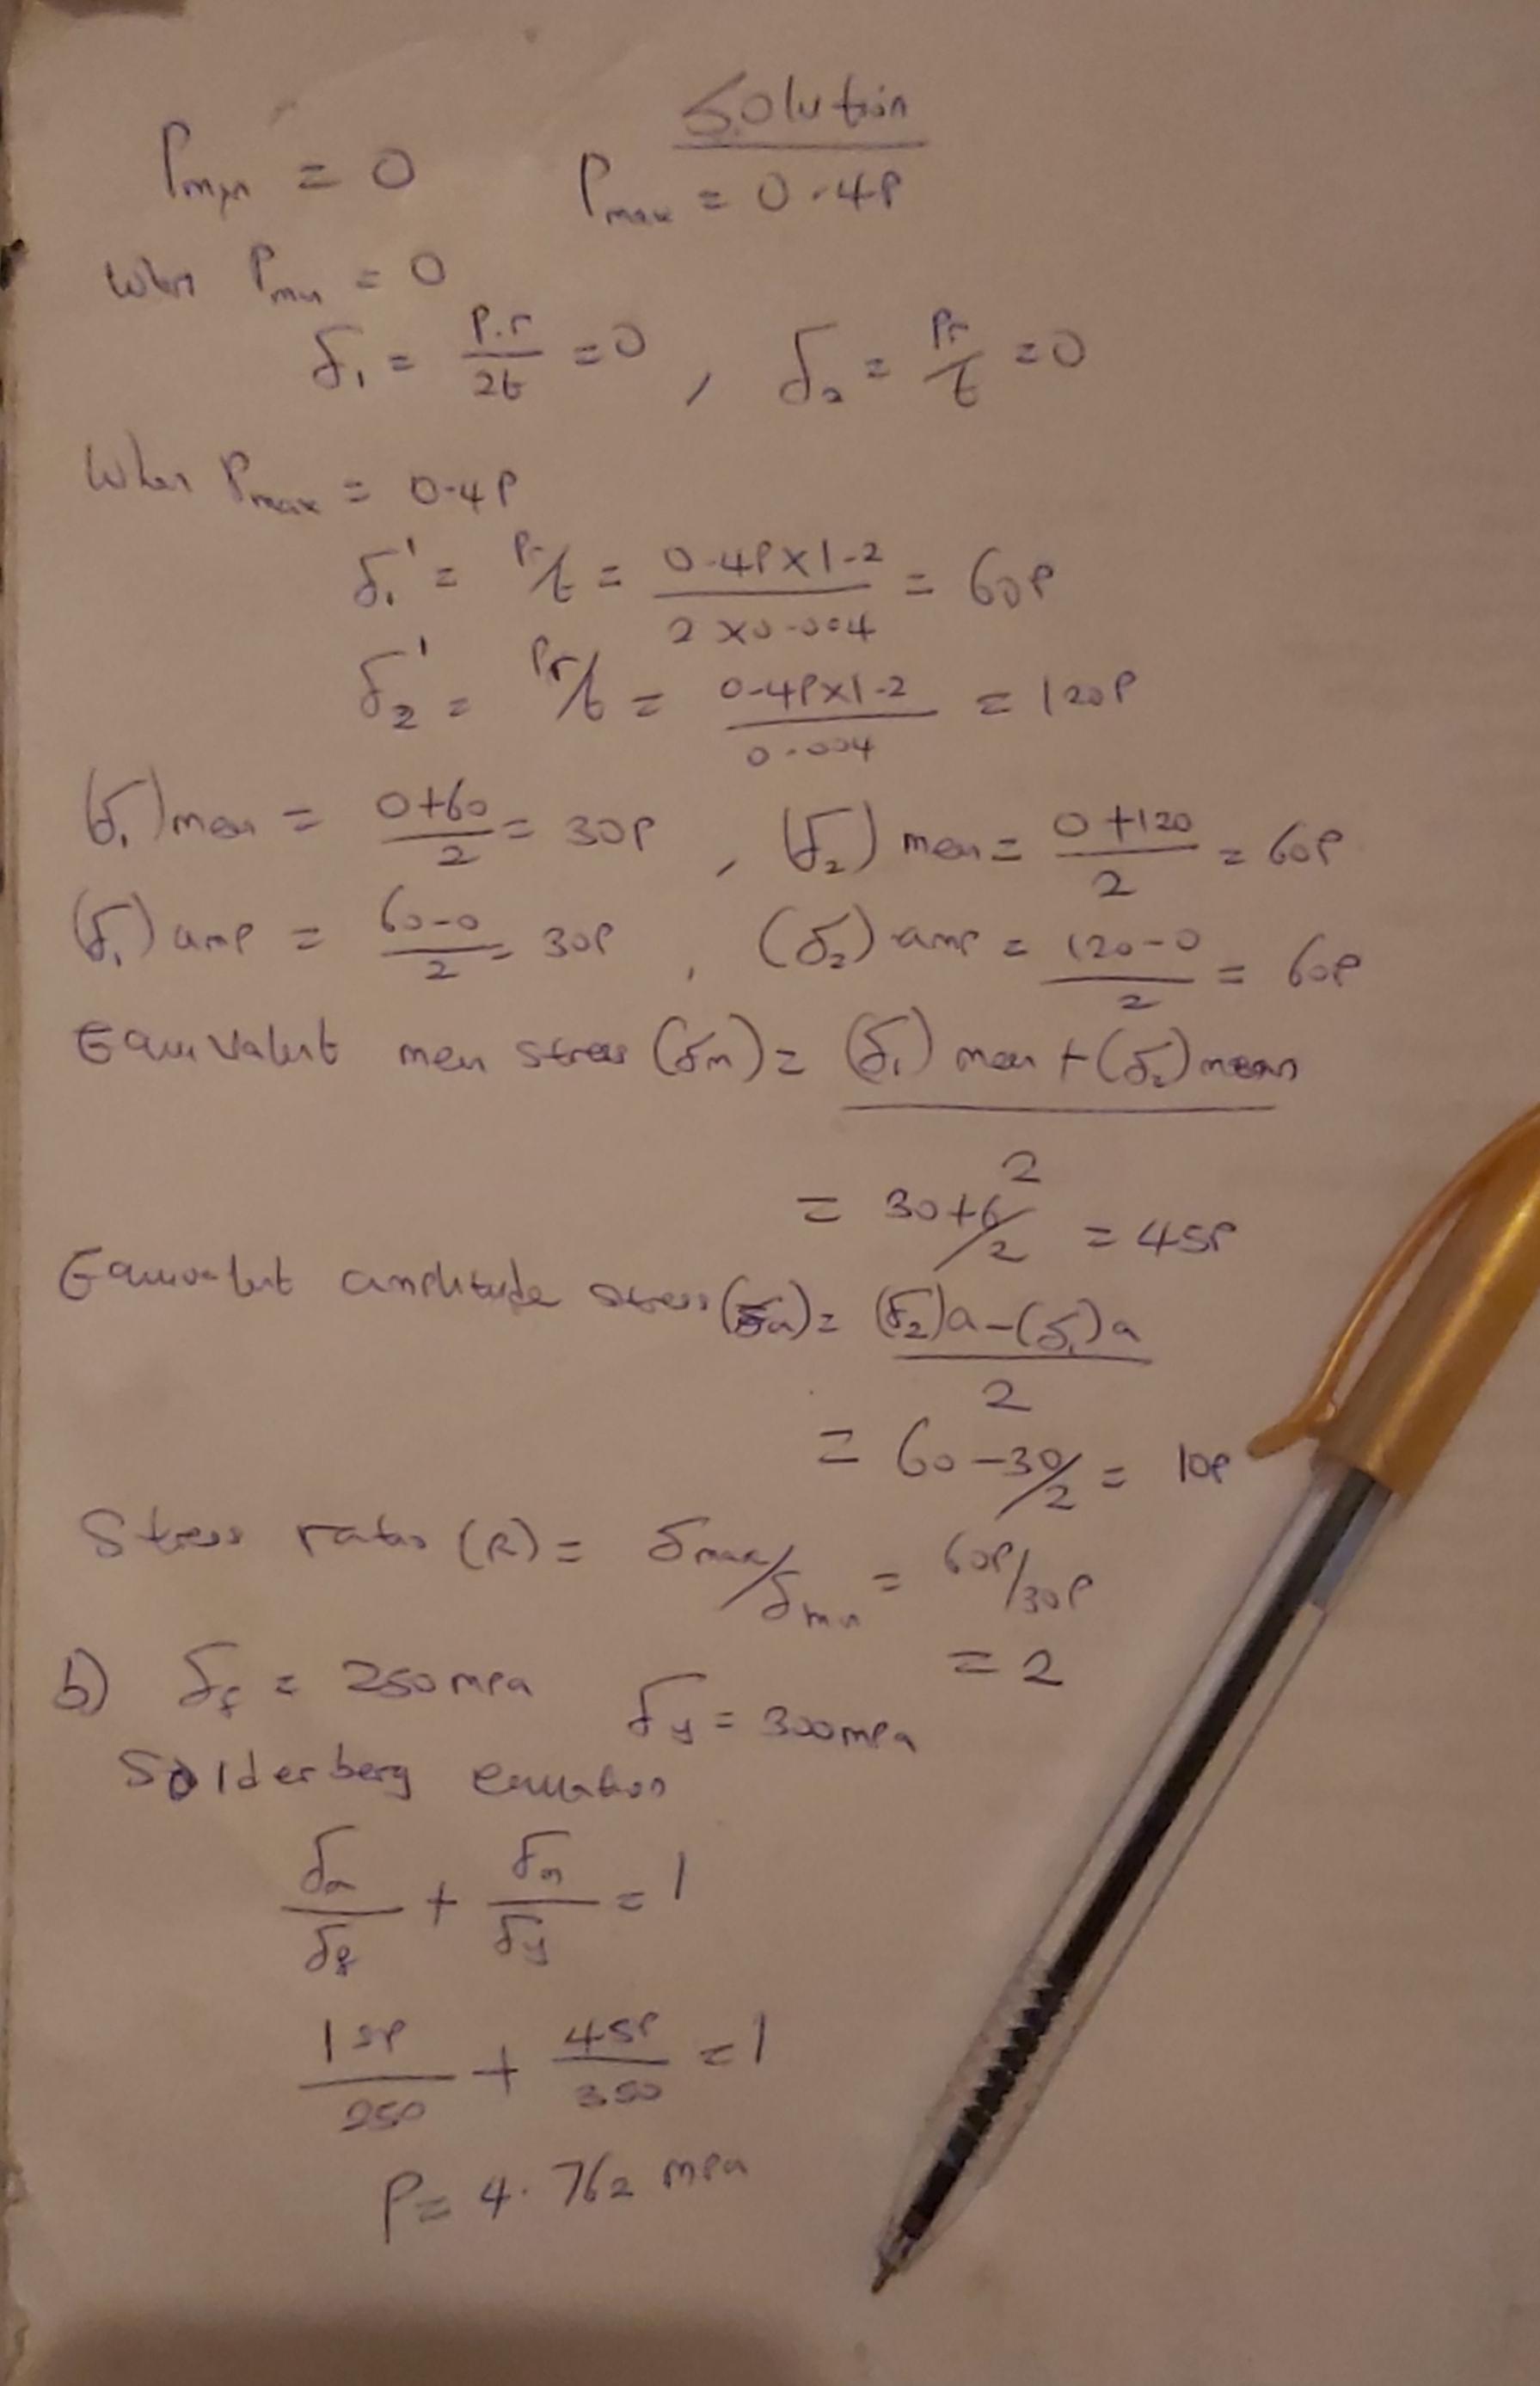 Solution
Pmin = 0    Pmax = 0.4P
When Pmin = 0
σ₁ = P.r/2t = 0 , σ₂ = Pr/t = 0
When Pmax = 0.4P
σ₁' = Pr/t = 0.4P×1.2/2×0.004 = 60P
σ₂' = Pr/t = 0.4P×1.2/0.004 = 120P
(σ₁)mean = 0+60/2 = 30P , (σ₂)mean = 0+120/2 = 60P
(σ₁)amp = 60-0/2 = 30P , (σ₂)amp = 120-0/2 = 60P
Equivalent mean stress (σm) = (σ₁)mean + (σ₂)mean/2
= 30+6/2 = 45P
Equivalent amplitude stress (σa) = (σ₂)a-(σ₁)a/2
= 60-30/2 = 10P
Stress ratio (R) = σmax/σmin = 60P/30P
= 2
b) σf = 250mpa    σy = 300mpa
Solderberg equation
σa/σf + σm/σy = 1
15P/250 + 45P/300 = 1
P = 4.762 mpa